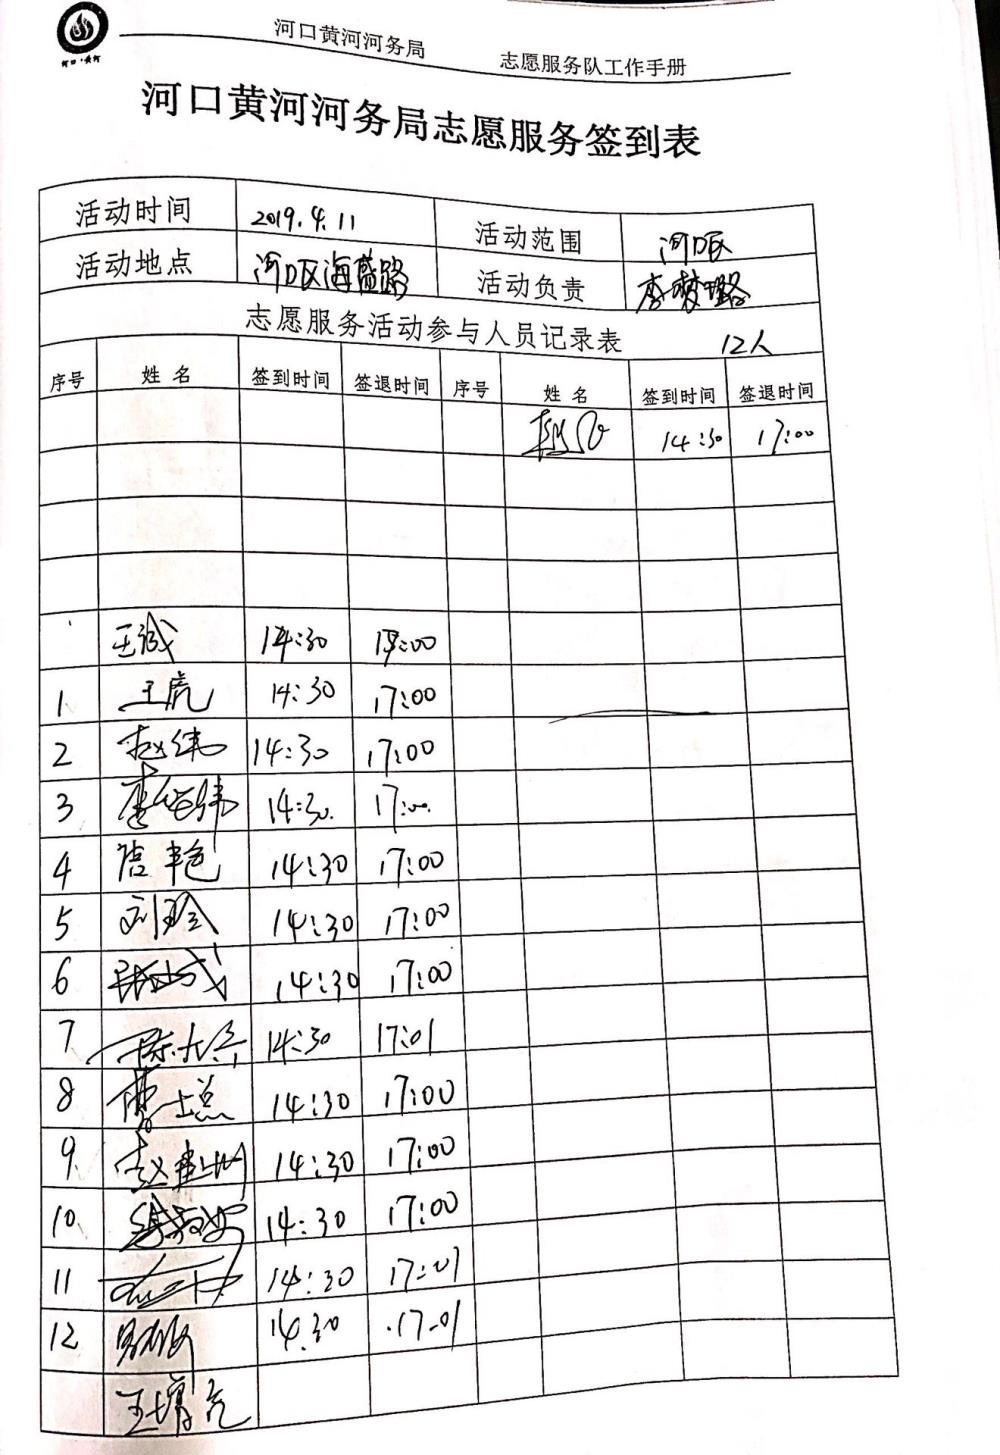 河口·黄河
河口黄河河务局 志愿服务队工作手册
河口黄河河务局志愿服务签到表
活动时间 2019.4.11 活动范围 河口区
活动地点 河口区海盛路 活动负责 李梦璐
志愿服务活动参与人员记录表 12人
序号 姓名 签到时间 签退时间 序号 姓名 签到时间 签退时间
14:30 17:00
王诚 14:30 :00
1 王虎 14:30 17:00
2 赵纬 14:30 17:00
3 14:30. 17:00.
4 信丰色 14:30 17:00
5 刘玲 14:30 17:00
6 14:30 17:00
7 14:30 17:01
8 14:30 17:00
9. 赵 14:30 17:00
10 14:30 17:00
11 14:30 17:01
12 14.30 17-01
王增亮